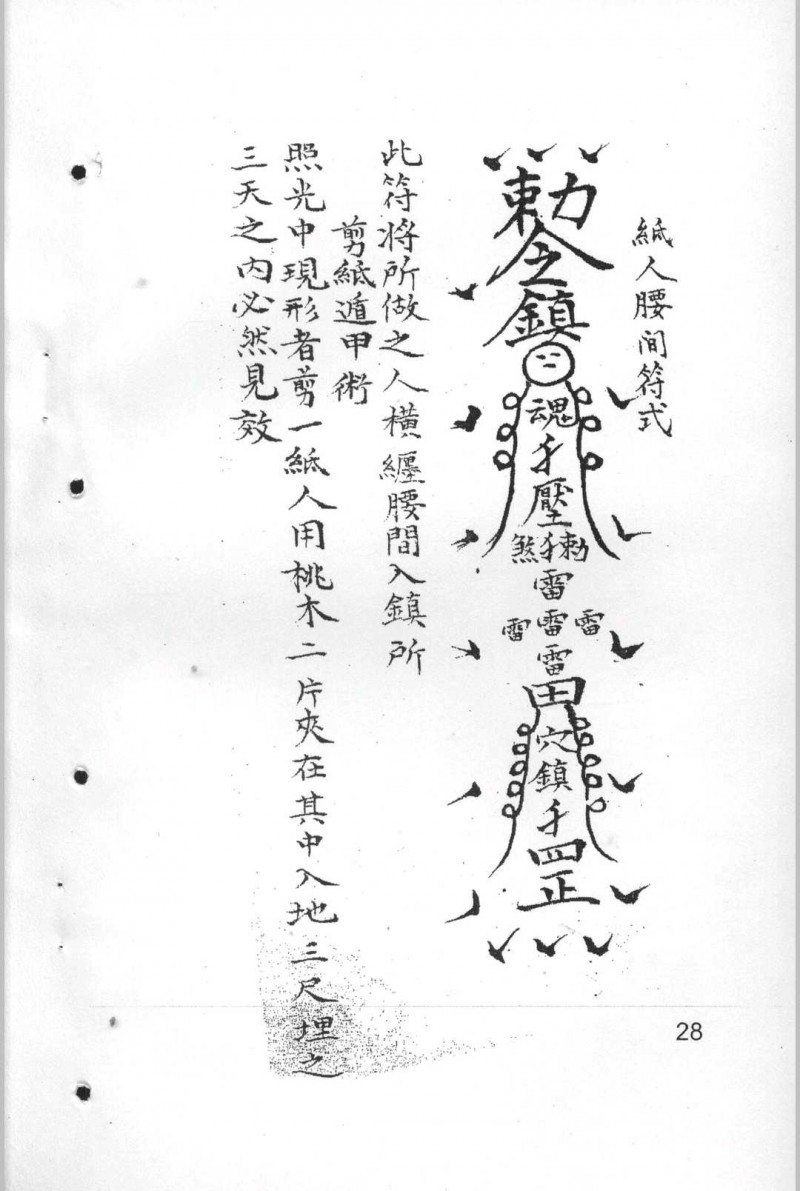 紙人腰间符式
勅令之鎮
魂
壓
煞 勅
雷
雷雷雷
雷
田
穴鎮
罡
此符将所做之人橫纏腰間入鎮所
剪紙遁甲術
照光中現形者剪一紙人用桃木二片夾在其中入地三尺埋之
三天之內必然見效
28